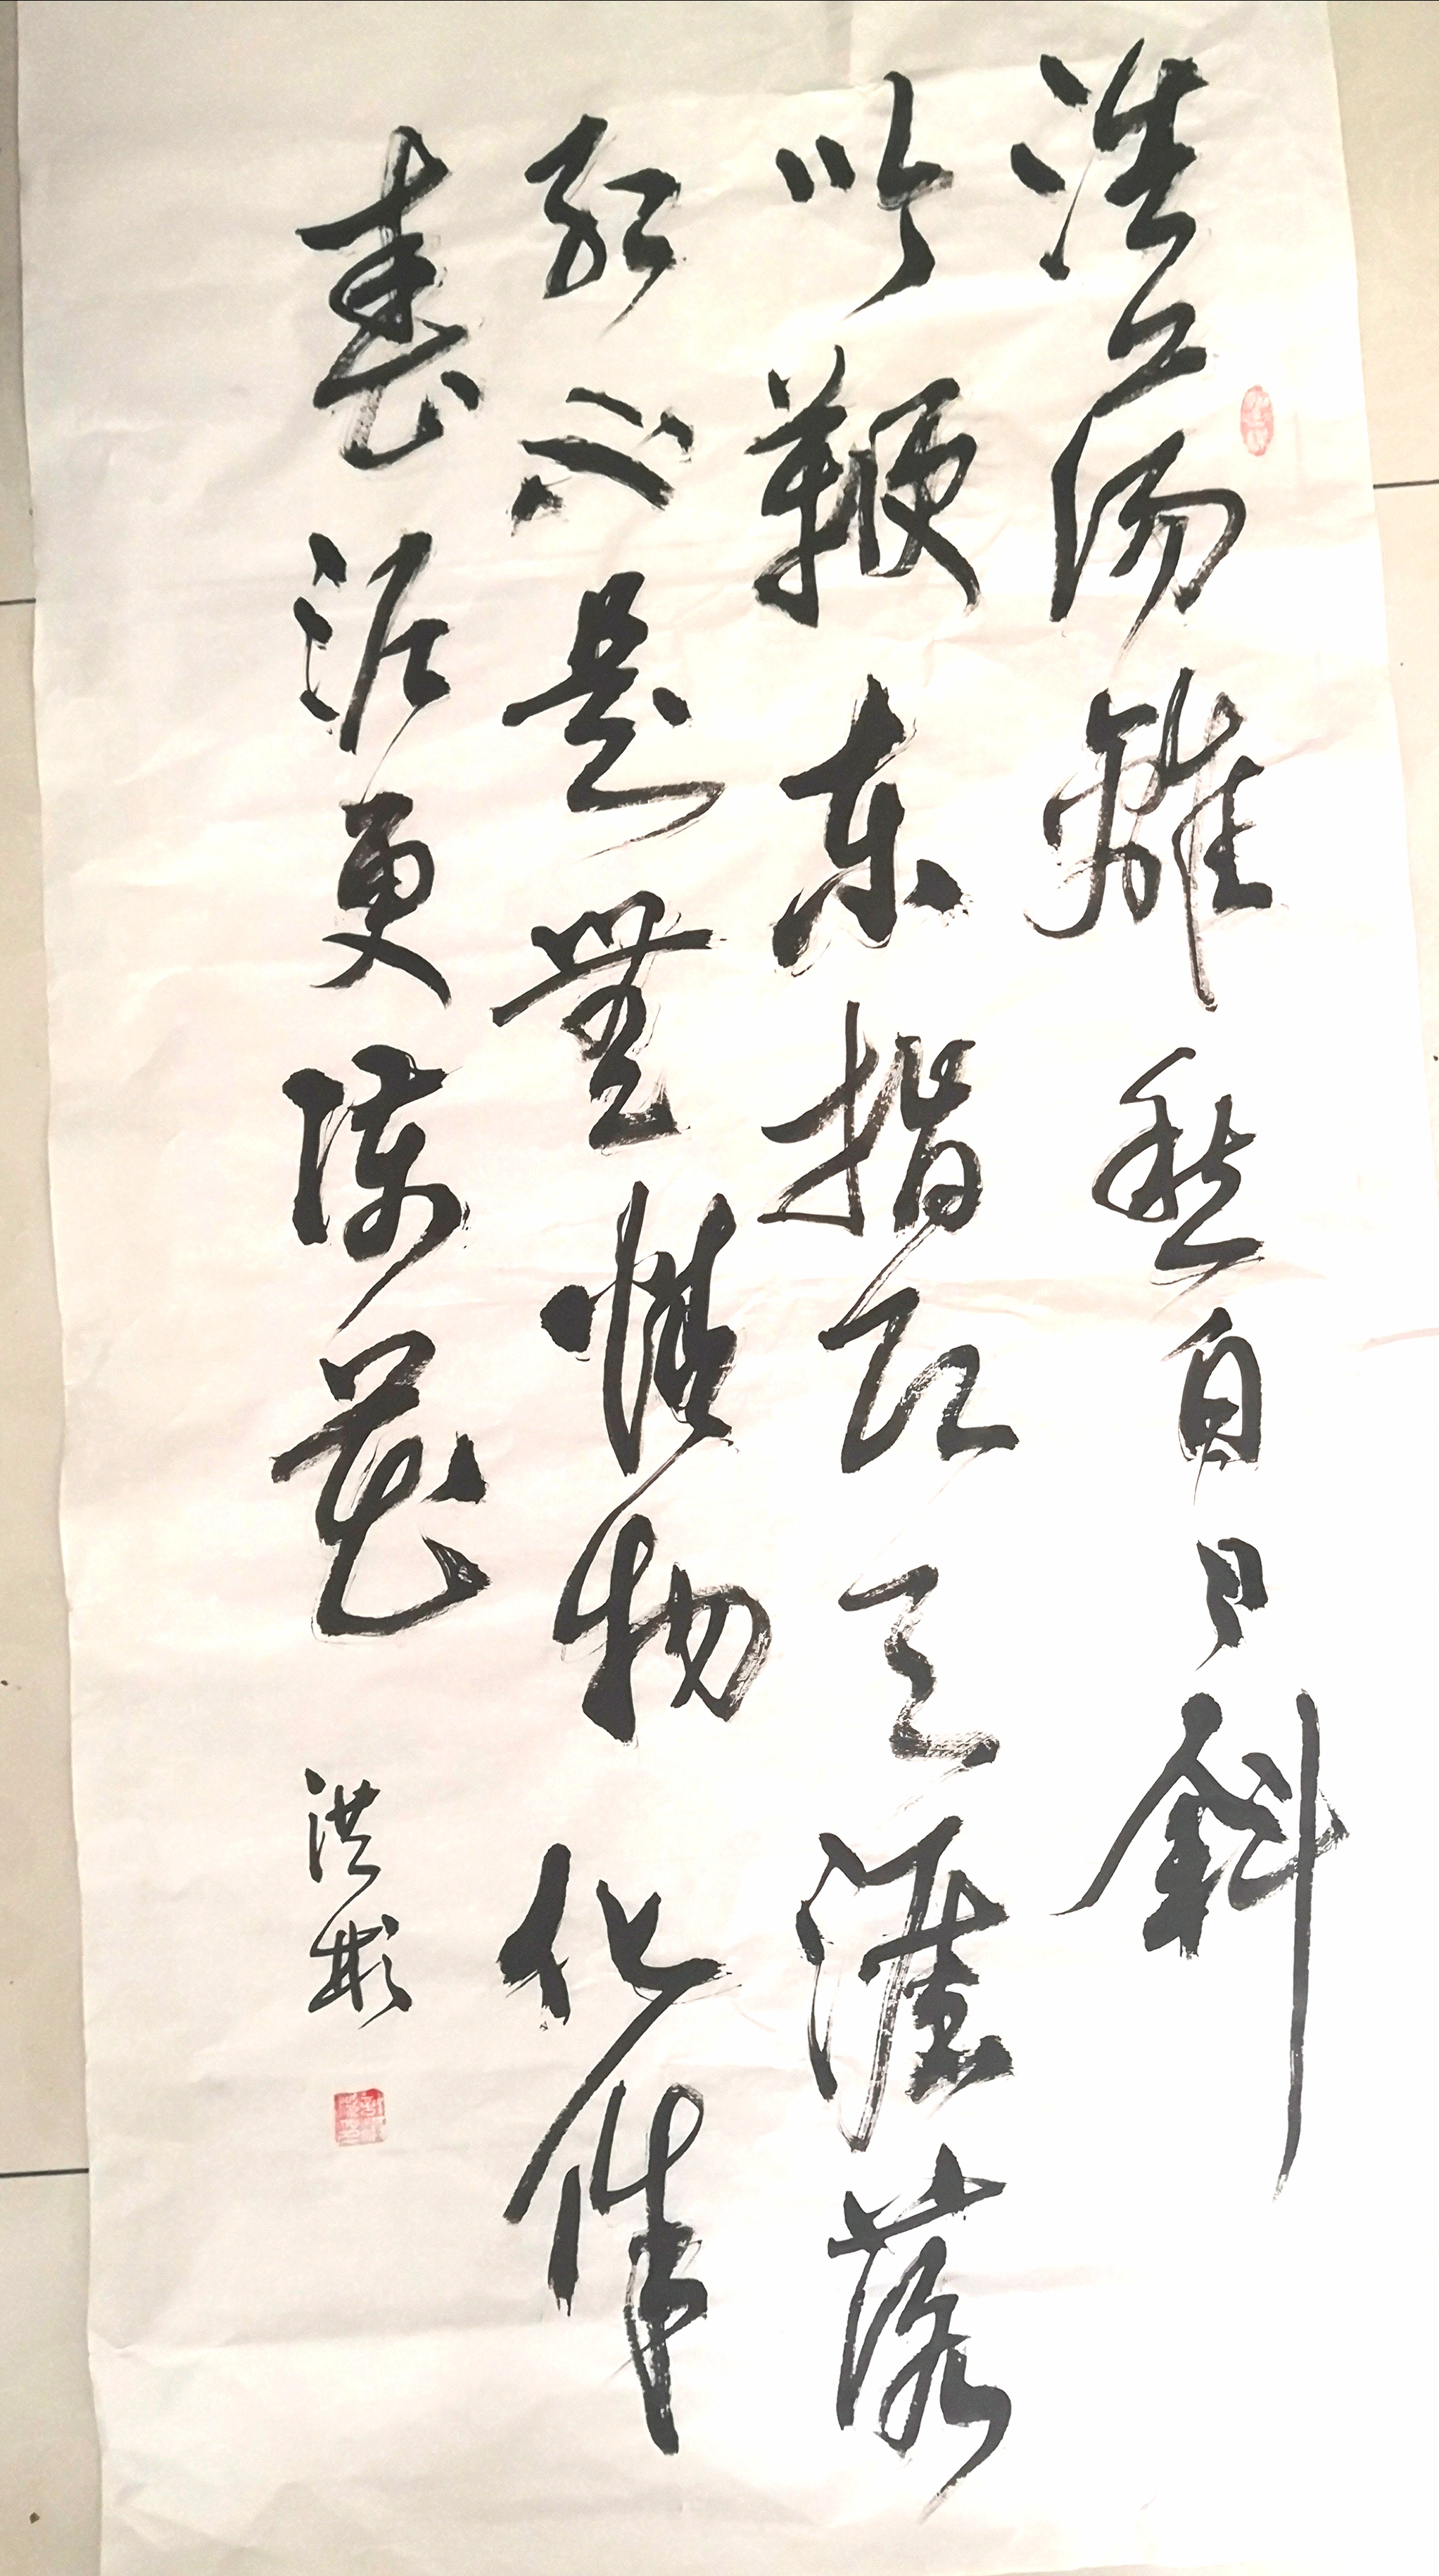 浩荡離愁白日斜
吟鞭东指即天涯落
红不是無情物化作
春泥更護花 洪彬